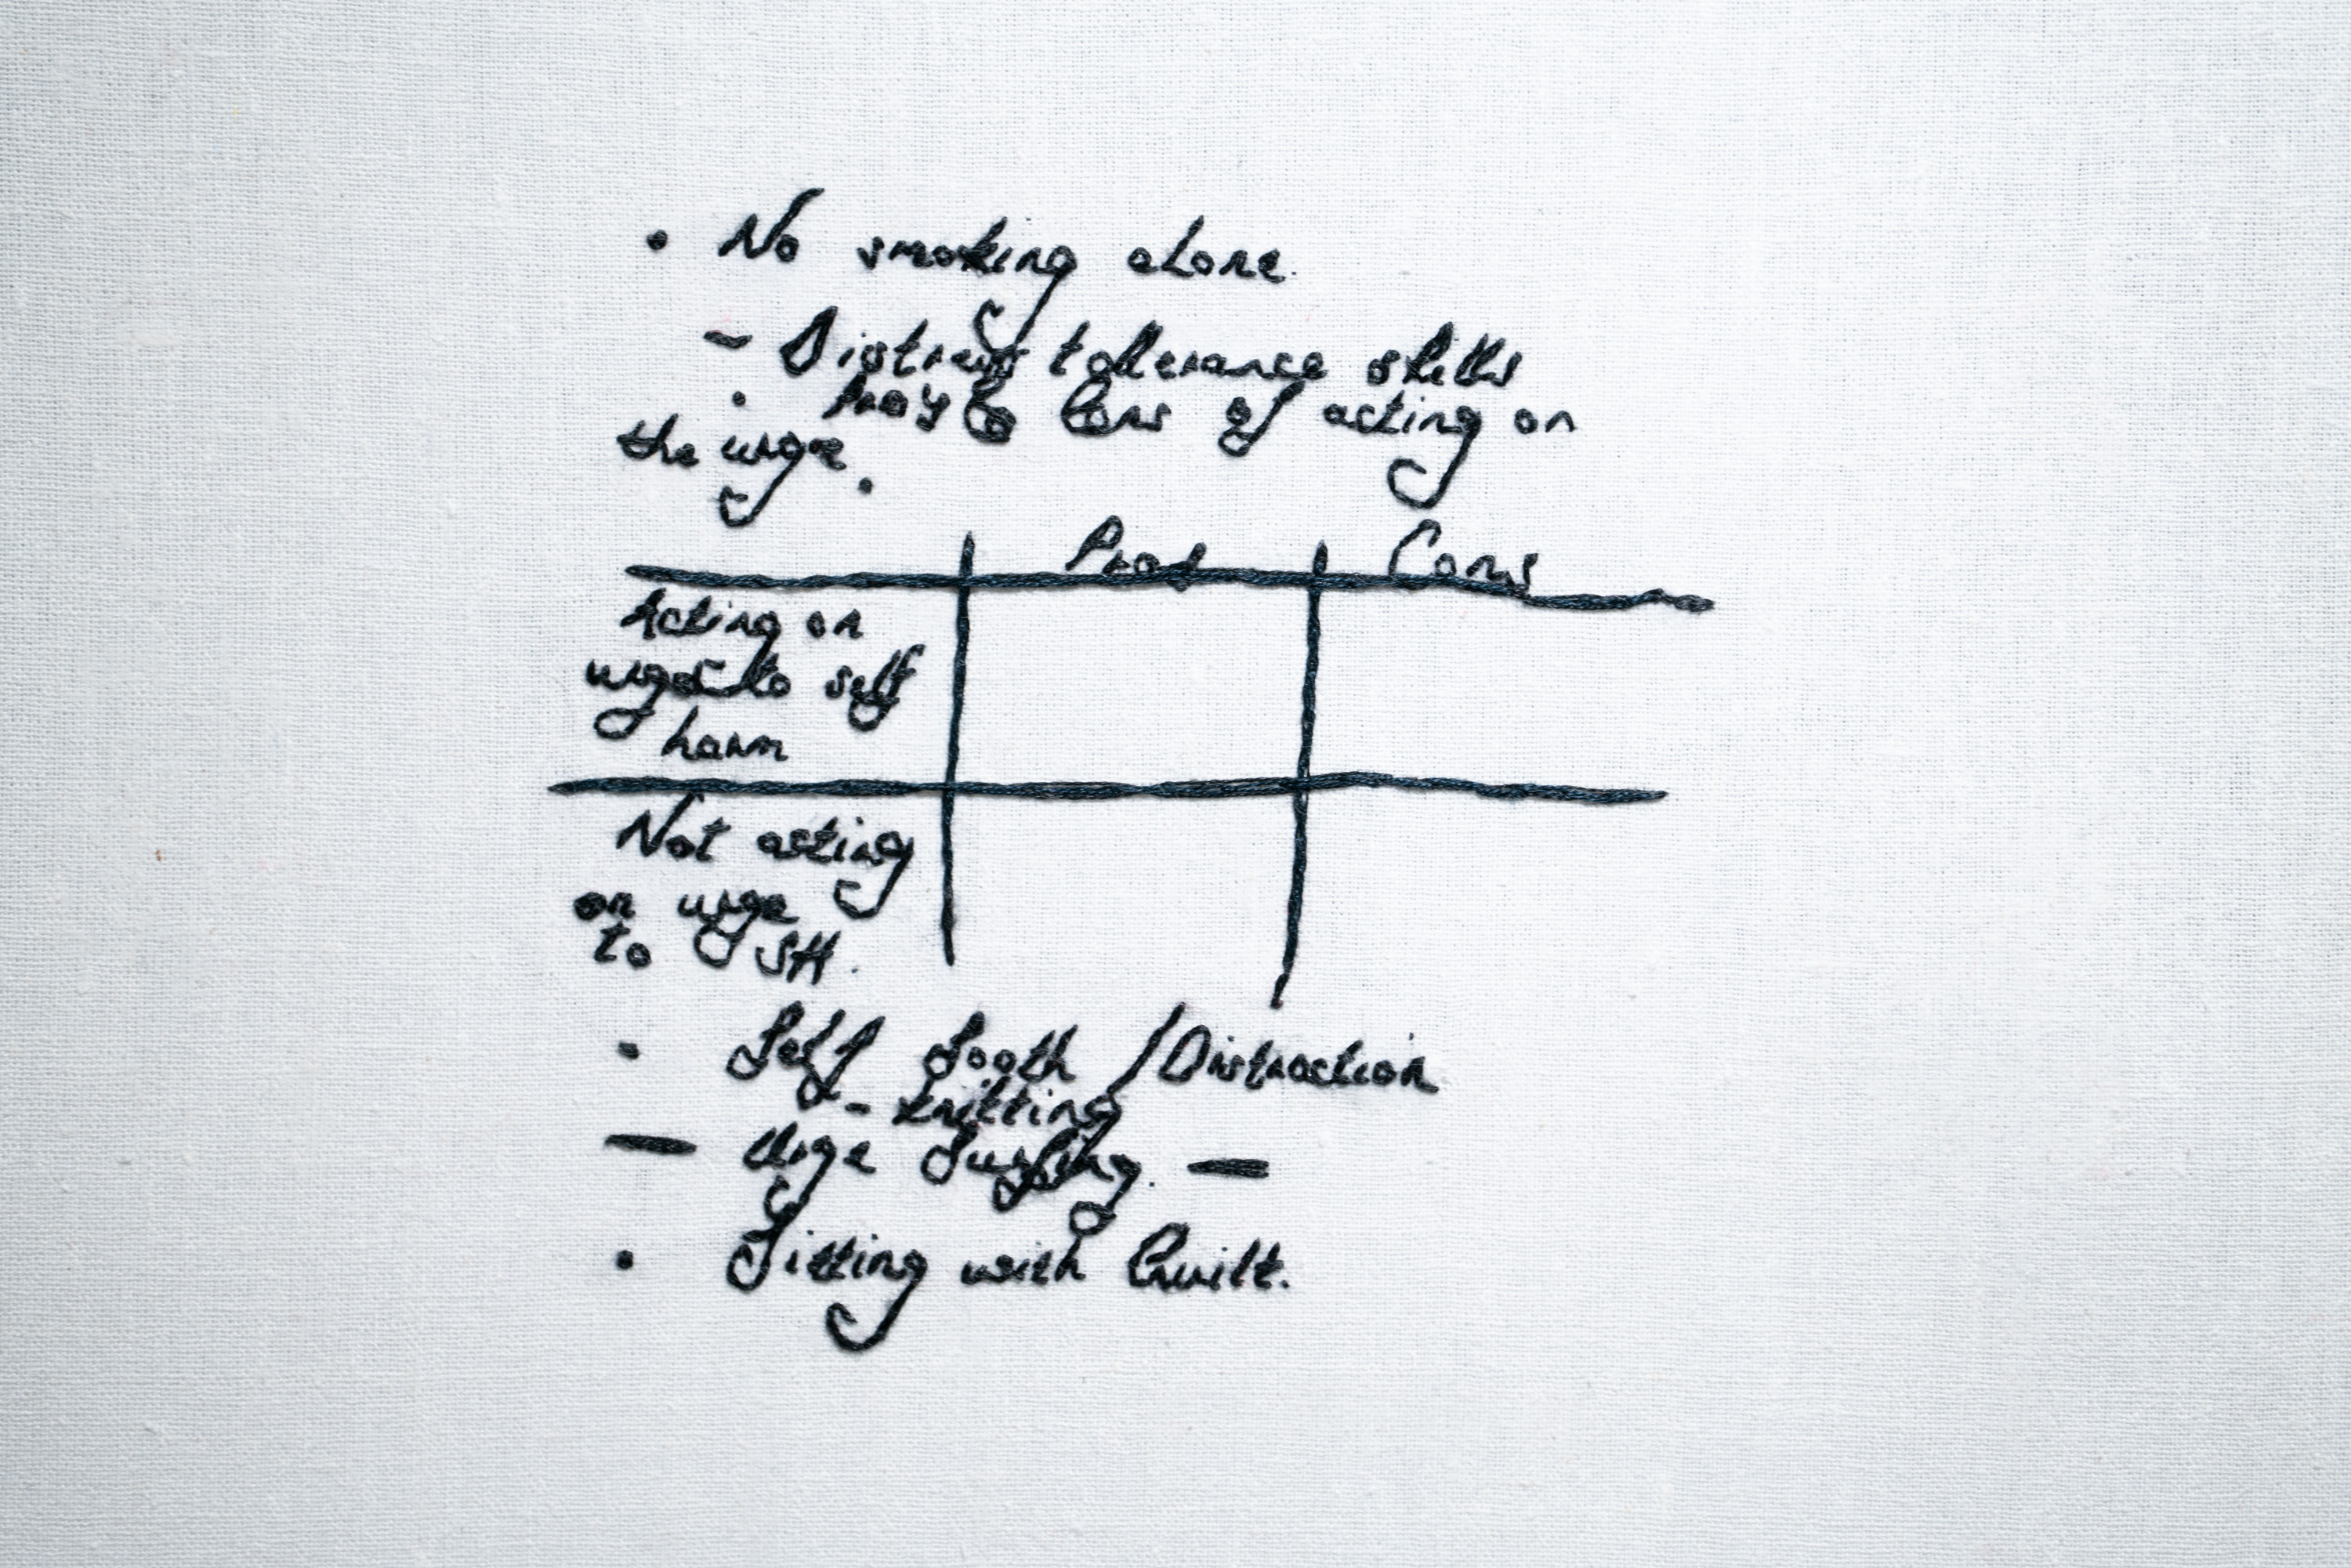 • No smoking alone.
- Distress tollerance skills
• Pro's & Cons of acting on
the urge.
Pros Cons
Acting on
urge to self
harm
Not acting
on urge
to SH.
• Self Sooth / Distraction
- knitting
— Urge Surfing. —
• Sitting with Guilt.